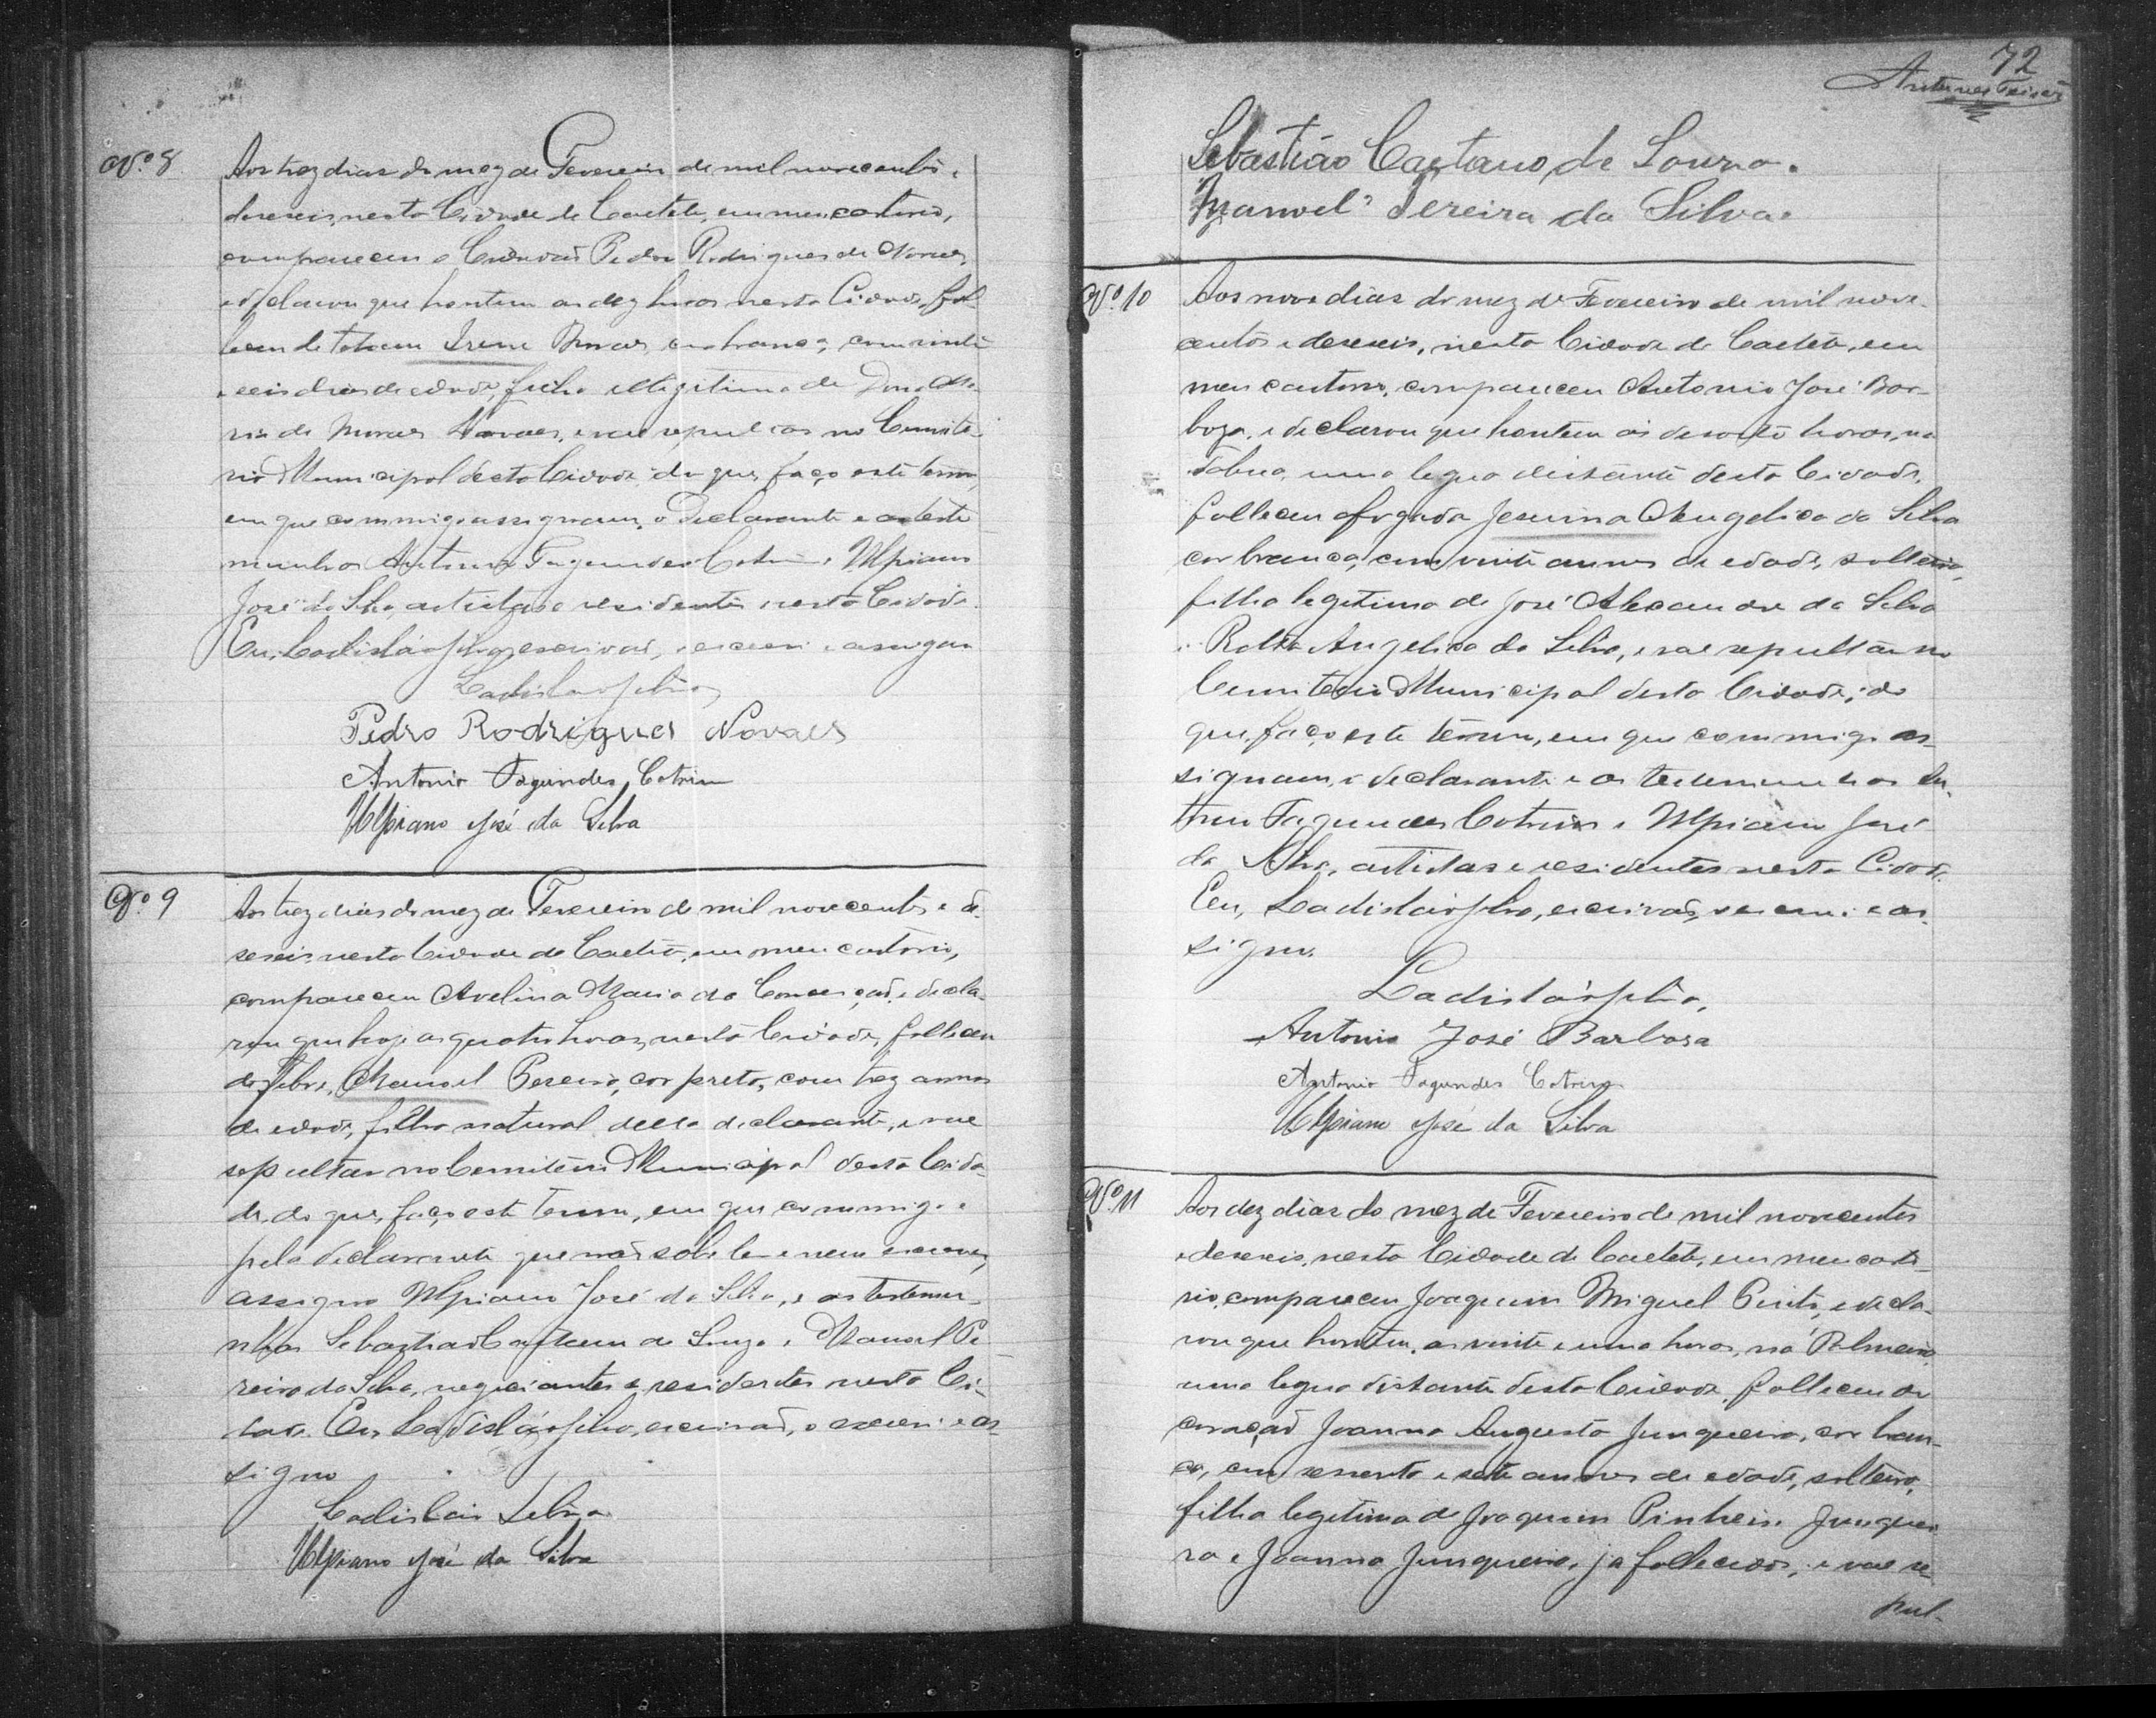 Nº 8
Aos trez dias do mez de Fevereiro de mil novecentos e
deseseis, nesta Cidade de Caeteté, em meu cartorio,
compareceu o Cidadão Pedro Rodrigues de Novaes,
e declarou que hontem as dez horas nesta Cidade, fal-
leceu de tetano Irene Novaes, cor branca, com vinte
e seis dias de edade, filha illegitima de Dona Ma-
ria de Novaes, e vae sepultar no Cemite-
rio Municipal desta Cidade; do que, faço este termo,
em que commigo assignam, o declarante e as teste-
munhas Antonio Fagundes Cotrim e Ulpiano
José da Silva, artistas e residentes nesta Cidade.
Eu, Ladisláo Silva, escrivão, o escrevi e assigno
Ladisláo Silva,
Pedro Rodrigues Novaes
Antonio Fagundes Cotrim
Ulpiano José da Silva
Nº 9
Aos trez dias do mez de Fevereiro de mil novecentos e de-
seseis, nesta Cidade de Caeteté, em meu cartorio,
compareceu Avelina Maria da Conceição, e decla-
rou que hoje as quatro horas, nesta Cidade, falleceu
de febre, Manoel Pereira, cor preta, com trez annos
de edade, filho natural della declarante, e vae
sepultar no Cemiterio Municipal desta Cida-
de, do que, faço este termo, em que commigo e
pela declarante que não sabe ler e nem escrever,
assigna Ulpiano José da Silva, e as testemu-
nhas Sebastião Caetano de Souza e Manoel Pe-
reira da Silva, negociantes e residentes nesta Ci-
dade. Eu, Ladisláo Silva, escrivão, o escrevi e as-
signo
Ladisláo Silva
Ulpiano José da Silva
72
Antunes
Sebastião Caetano de Souza.
Manoel Pereira da Silva.
Nº 10
Aos nove dias do mez de Fevereiro de mil nove-
centos e deseseis, nesta Cidade de Caeteté, em
meu cartorio, compareceu Antonio José Bar-
boza, e declarou que hontem as desoito horas, na
Tabua, uma legua distante desta Cidade,
falleceu afogada Jesuina Angelica da Silva
cor branca, com vinte annos de edade, solteira,
filha legitima de José Alexandre da Silva
e Rolta Angelica da Silva, e vae sepultar no
Cemiterio Municipal desta Cidade; do
que, faço este termo, em que commigo as-
signam, o declarante e as testemunhas An-
tonio Fagundes Cotrim e Ulpiano José
da Silva, artistas e residentes nesta Cidade.
Eu, Ladisláo Silva, escrivão, o escrevi e as-
signo.
Ladisláo Silva,
Antonio José Barbosa
Antonio Fagundes Cotrim
Ulpiano José da Silva
Nº 11
Aos dez dias do mez de Fevereiro de mil novecentos
e deseseis, nesta Cidade de Caeteté, em meu carto-
rio, compareceu Joaquim Miguel Pinto, e decla-
rou que hontem, as vinte e uma horas, na Palmeira,
uma legua distante desta Cidade, falleceu do
coração Joanna Augusta Junqueira, cor bran-
ca, com sessenta e sete annos de edade, solteira,
filha legitima de Joaquim Pinheiro Junquei-
ra e Joanna Junqueira, ja fallecidos, e vae se-
pul-